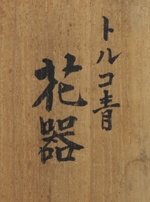 トルコ青
花器